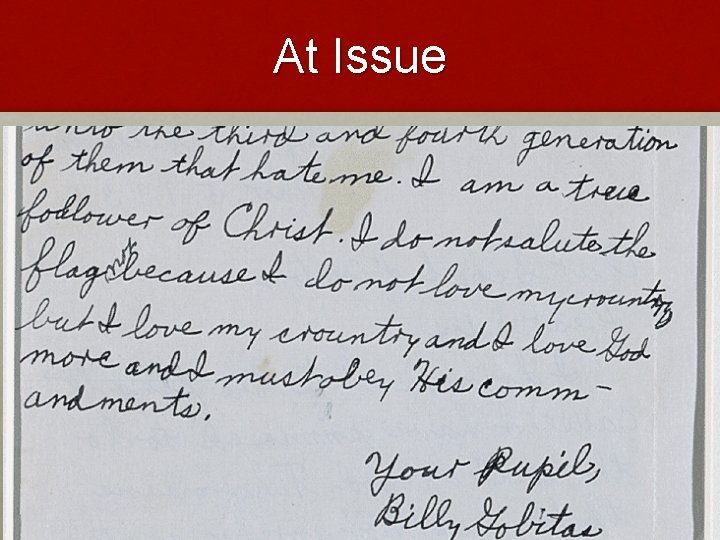 At Issue
unto the third and fourth generation
of them that hate me. I am a true
follower of Christ. I do not salute the
flag not because I do not love my crountry
but I love my crountry and I love God
more and I must obey His comm-
andments.
Your Pupil,
Billy Gobitas